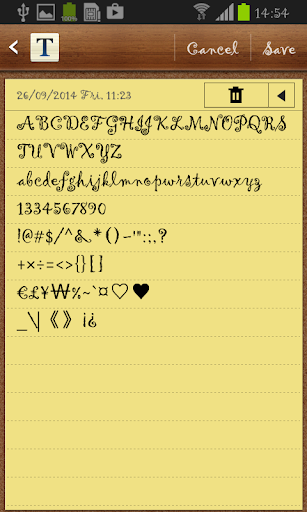 14:54
T Cancel Save
26/09/2014 Fri. 11:23
ABCDEFGHIJKLMNOPWRS
TUVWXYZ
abcdefghijklmnopwrstuvwxyz
1334567890
!@#$/^&*()-'":;,?
+×÷=<>{}[]
€£¥₩%~`¤♡♥
_\|《》¡¿